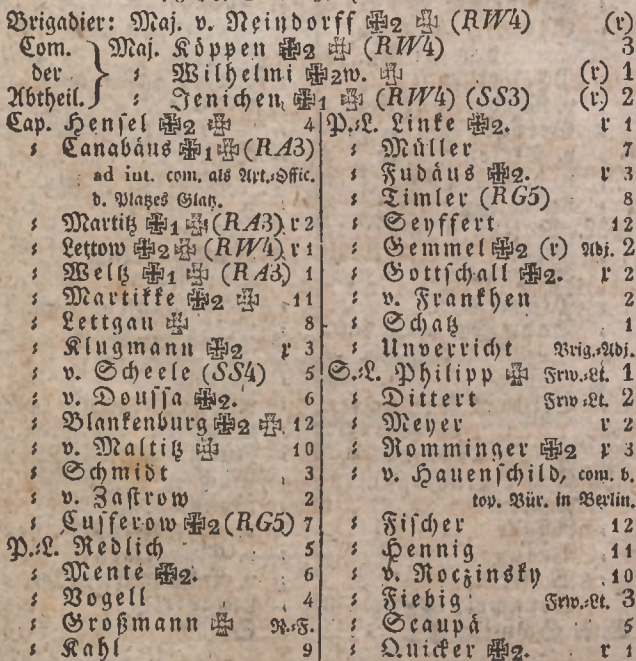 Brigadier: Maj. v. Neindorff ✠2 ✠ (RW4) (r)
Com. Maj. Köppen ✠2 ✠ (RW4) 3
der ⸗ Wilhelmi ✠2w. ✠ (r) 1
Abtheil. ⸗ Jenichen ✠1 ✠ (RW4) (SS3) (r) 2
Cap. Hensel ✠2 ✠ 4
⸗ Canabäus ✠1 ✠ (RA3)
ad int. com. als Art.⸗Offic.
d. Platzes Glatz.
⸗ Martitz ✠1 ✠ (RA3) r 2
⸗ Lettow ✠2 ✠ (RW4) r 1
⸗ Weltz ✠1 ✠ (RA3) 1
⸗ Martikke ✠2 ✠ 11
⸗ Lettgau ✠ 8
⸗ Klugmann ✠2 r 3
⸗ v. Scheele (SS4) 5
⸗ v. Doussa ✠2. 6
⸗ Blankenburg ✠2 ✠ 12
⸗ v. Maltitz ✠ 10
⸗ Schmidt 3
⸗ v. Zastrow 2
⸗ Cusserow ✠2 (RG5) 7
P.⸗L. Redlich 5
⸗ Mente ✠2. 6
⸗ Vogell 4
⸗ Großmann ✠ R.⸗F.
⸗ Kahl 9
P.⸗L. Linke ✠2. r 1
⸗ Müller 7
⸗ Fudäus ✠2. r 3
⸗ Timler (RG5) 8
⸗ Seyffert 12
⸗ Gemmel ✠2 (r) Adj. 2
⸗ Gottschall ✠2. r 2
⸗ v. Frankhen 2
⸗ Schatz 1
⸗ Unverricht Brig.⸗Adj.
S.⸗L. Philipp ✠ Frw.⸗Lt. 1
⸗ Dittert Frw.⸗Lt. 2
⸗ Meyer r 2
⸗ Romminger ✠2 r 3
⸗ v. Hauenschild, com. b.
top. Bür. in Berlin.
⸗ Fischer 12
⸗ Hennig 11
⸗ v. Roczinsky 10
⸗ Fiebig Frw.⸗Lt. 3
⸗ Scaupä 5
⸗ Quicker ✠2. r 1